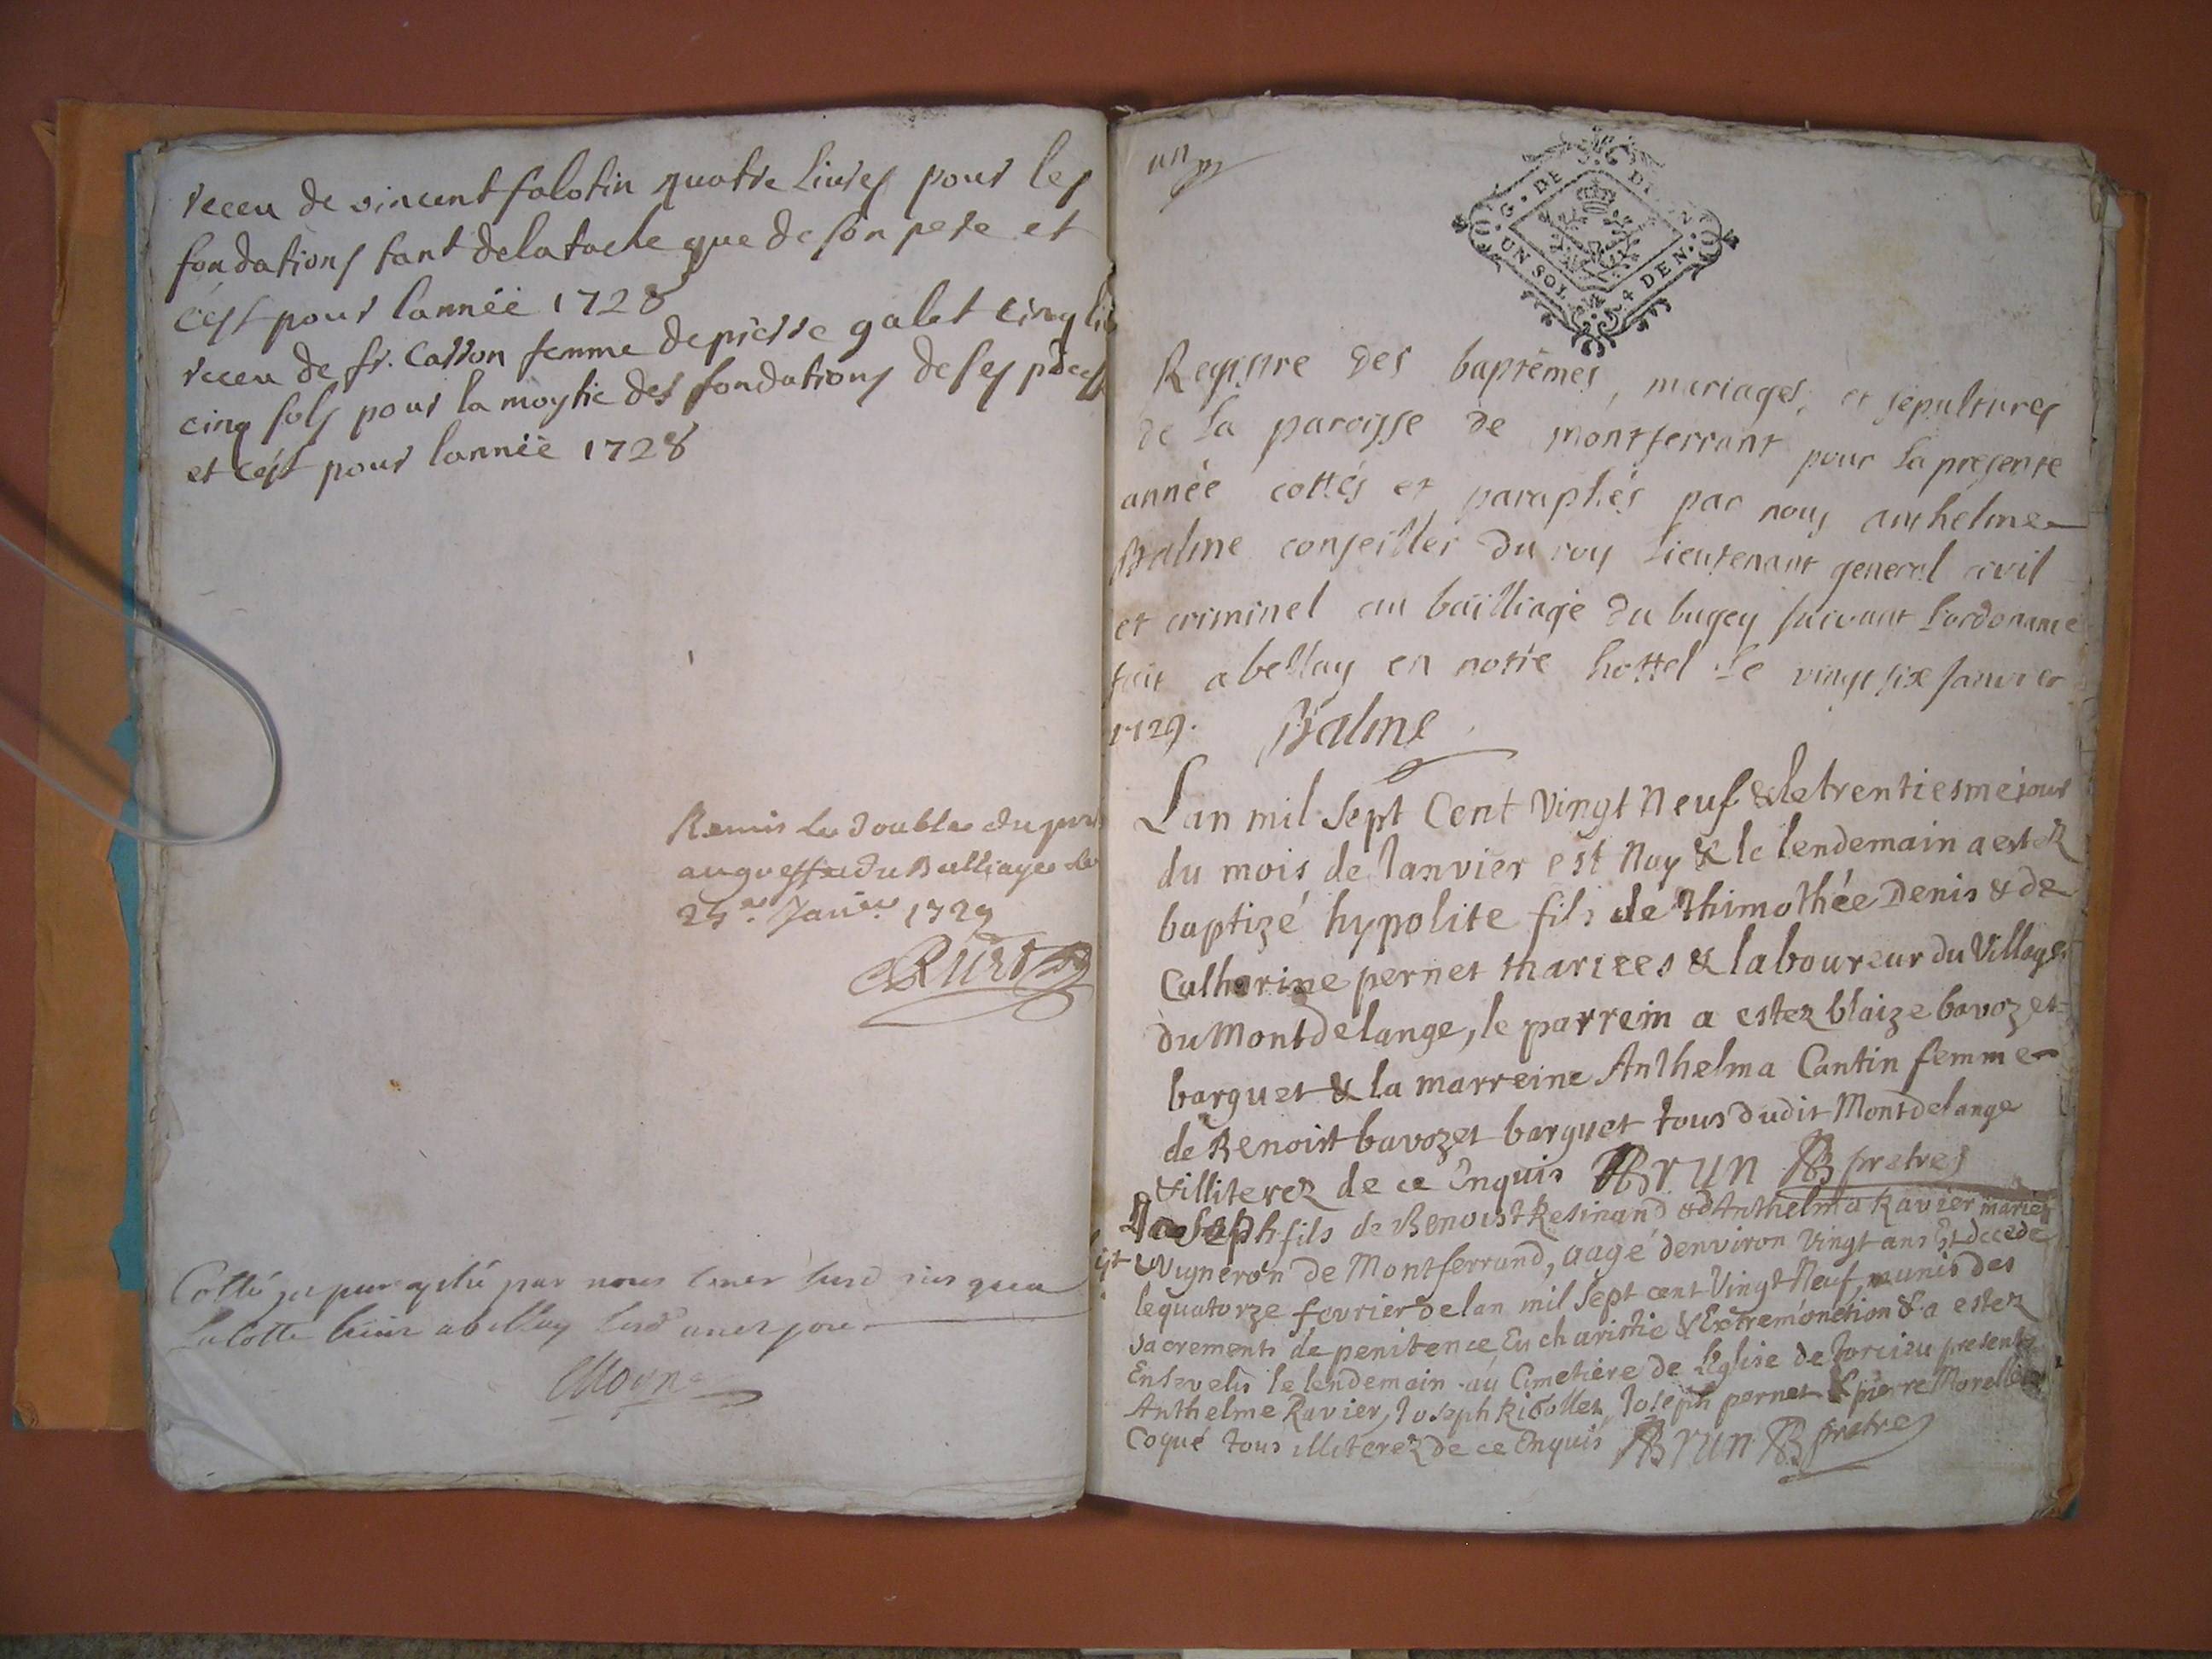 receu de vincent falotin quatre liures pour les
fondations tant delatache que de son pere et
c'est pour lanneé 1728
receu de fr. Carron femme de pierre galet cinq
cinq sols pour la moytie des fondations de ses
et c'est pour lanneé 1728
Remis le double du
au greffe du Balliage le
Janier 1729
Cotté et paraphé par nous
la cotte abellay
un
G. DE DIION
UN SOL 4 DEN.
Registre des baptêmes, mariages, et sepultures
de La paroisse de montferrant pour La presente
année cottés et paraphés par nous anthelme
Balme conseiller du roy Lieutenant general civil
et criminel au bailliage du bugey suivant Lordonance
fait a bellay en notre hottel Le vingt six Janvier
1729. Balme
Lan mil Sept Cent Vingt Neuf & le trentiesme jour
du mois de Janvier est Nay & le lendemain a estez
baptizé hypolite fils de Thimothée Denis & de
Catherine pernet mariees & laboureur du Village
du Montdelange, le parrein a estez blaize bavozet
barquet & la marreine Anthelma Cantin femme
de Benoist bavozet barquet tous dudit Montdelange
& illiterez de ce Enquis Brun pretres
Joseph fils de Benoist Resinand & d'Anthelma Ravier mariez
Vigneron de Montferrand, aagé denviron Vingt ans Est decedé
le quatorze fevrier de lan mil Sept cent Vingt Neuf, munis des
Sacrements de penitence Eucharistie & Extremonction & a estez
Ensevelis le lendemain au Cimetiere de Leglise de Torcieu presents
Anthelme Ravier, Joseph Ribollet, Joseph pernet & pierre Morellet
Coqué tous illiterez de ce Enquis Brun pretre